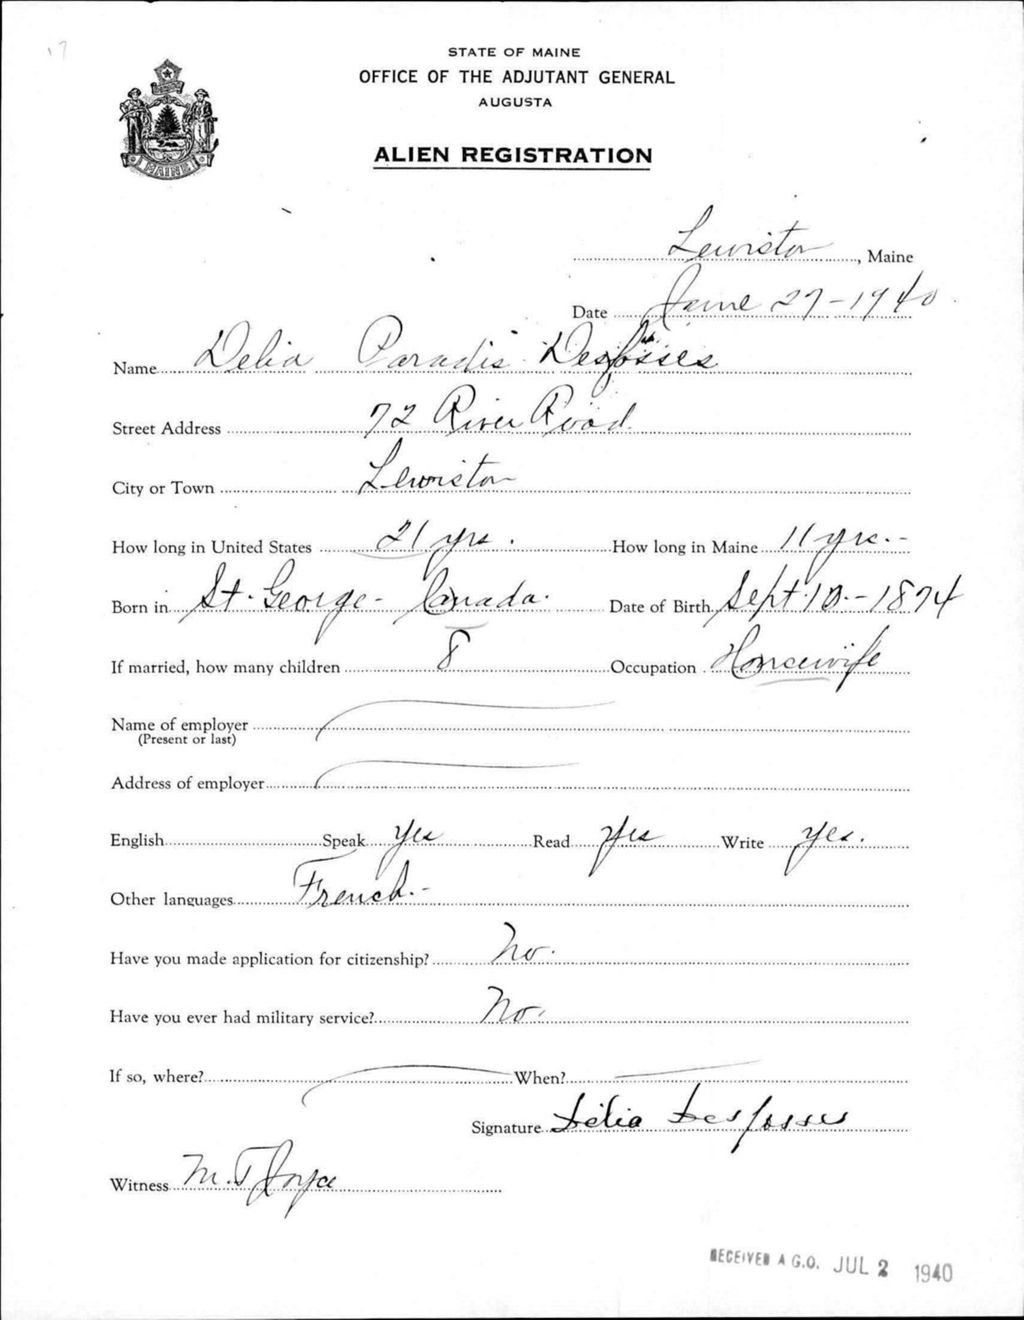 17
STATE OF MAINE
OFFICE OF THE ADJUTANT GENERAL
AUGUSTA
ALIEN REGISTRATION
MAINE
Lewiston, Maine
Date June 27-1940
Name Delia Paradis Desfosses
Street Address 72 River Road
City or Town Lewiston
How long in United States 21 yrs. How long in Maine 11 yrs.-
Born in St. George- Canada. Date of Birth Sept. 10.-1874
If married, how many children 8 Occupation Housewife
Name of employer
(Present or last)
Address of employer
English Speak Yes Read Yes Write Yes.
Other languages French.-
Have you made application for citizenship? No.
Have you ever had military service? No.
If so, where? When?
Signature Délia Desfosses
Witness M. T Joyce
RECEIVED A.G.O. JUL 2 1940